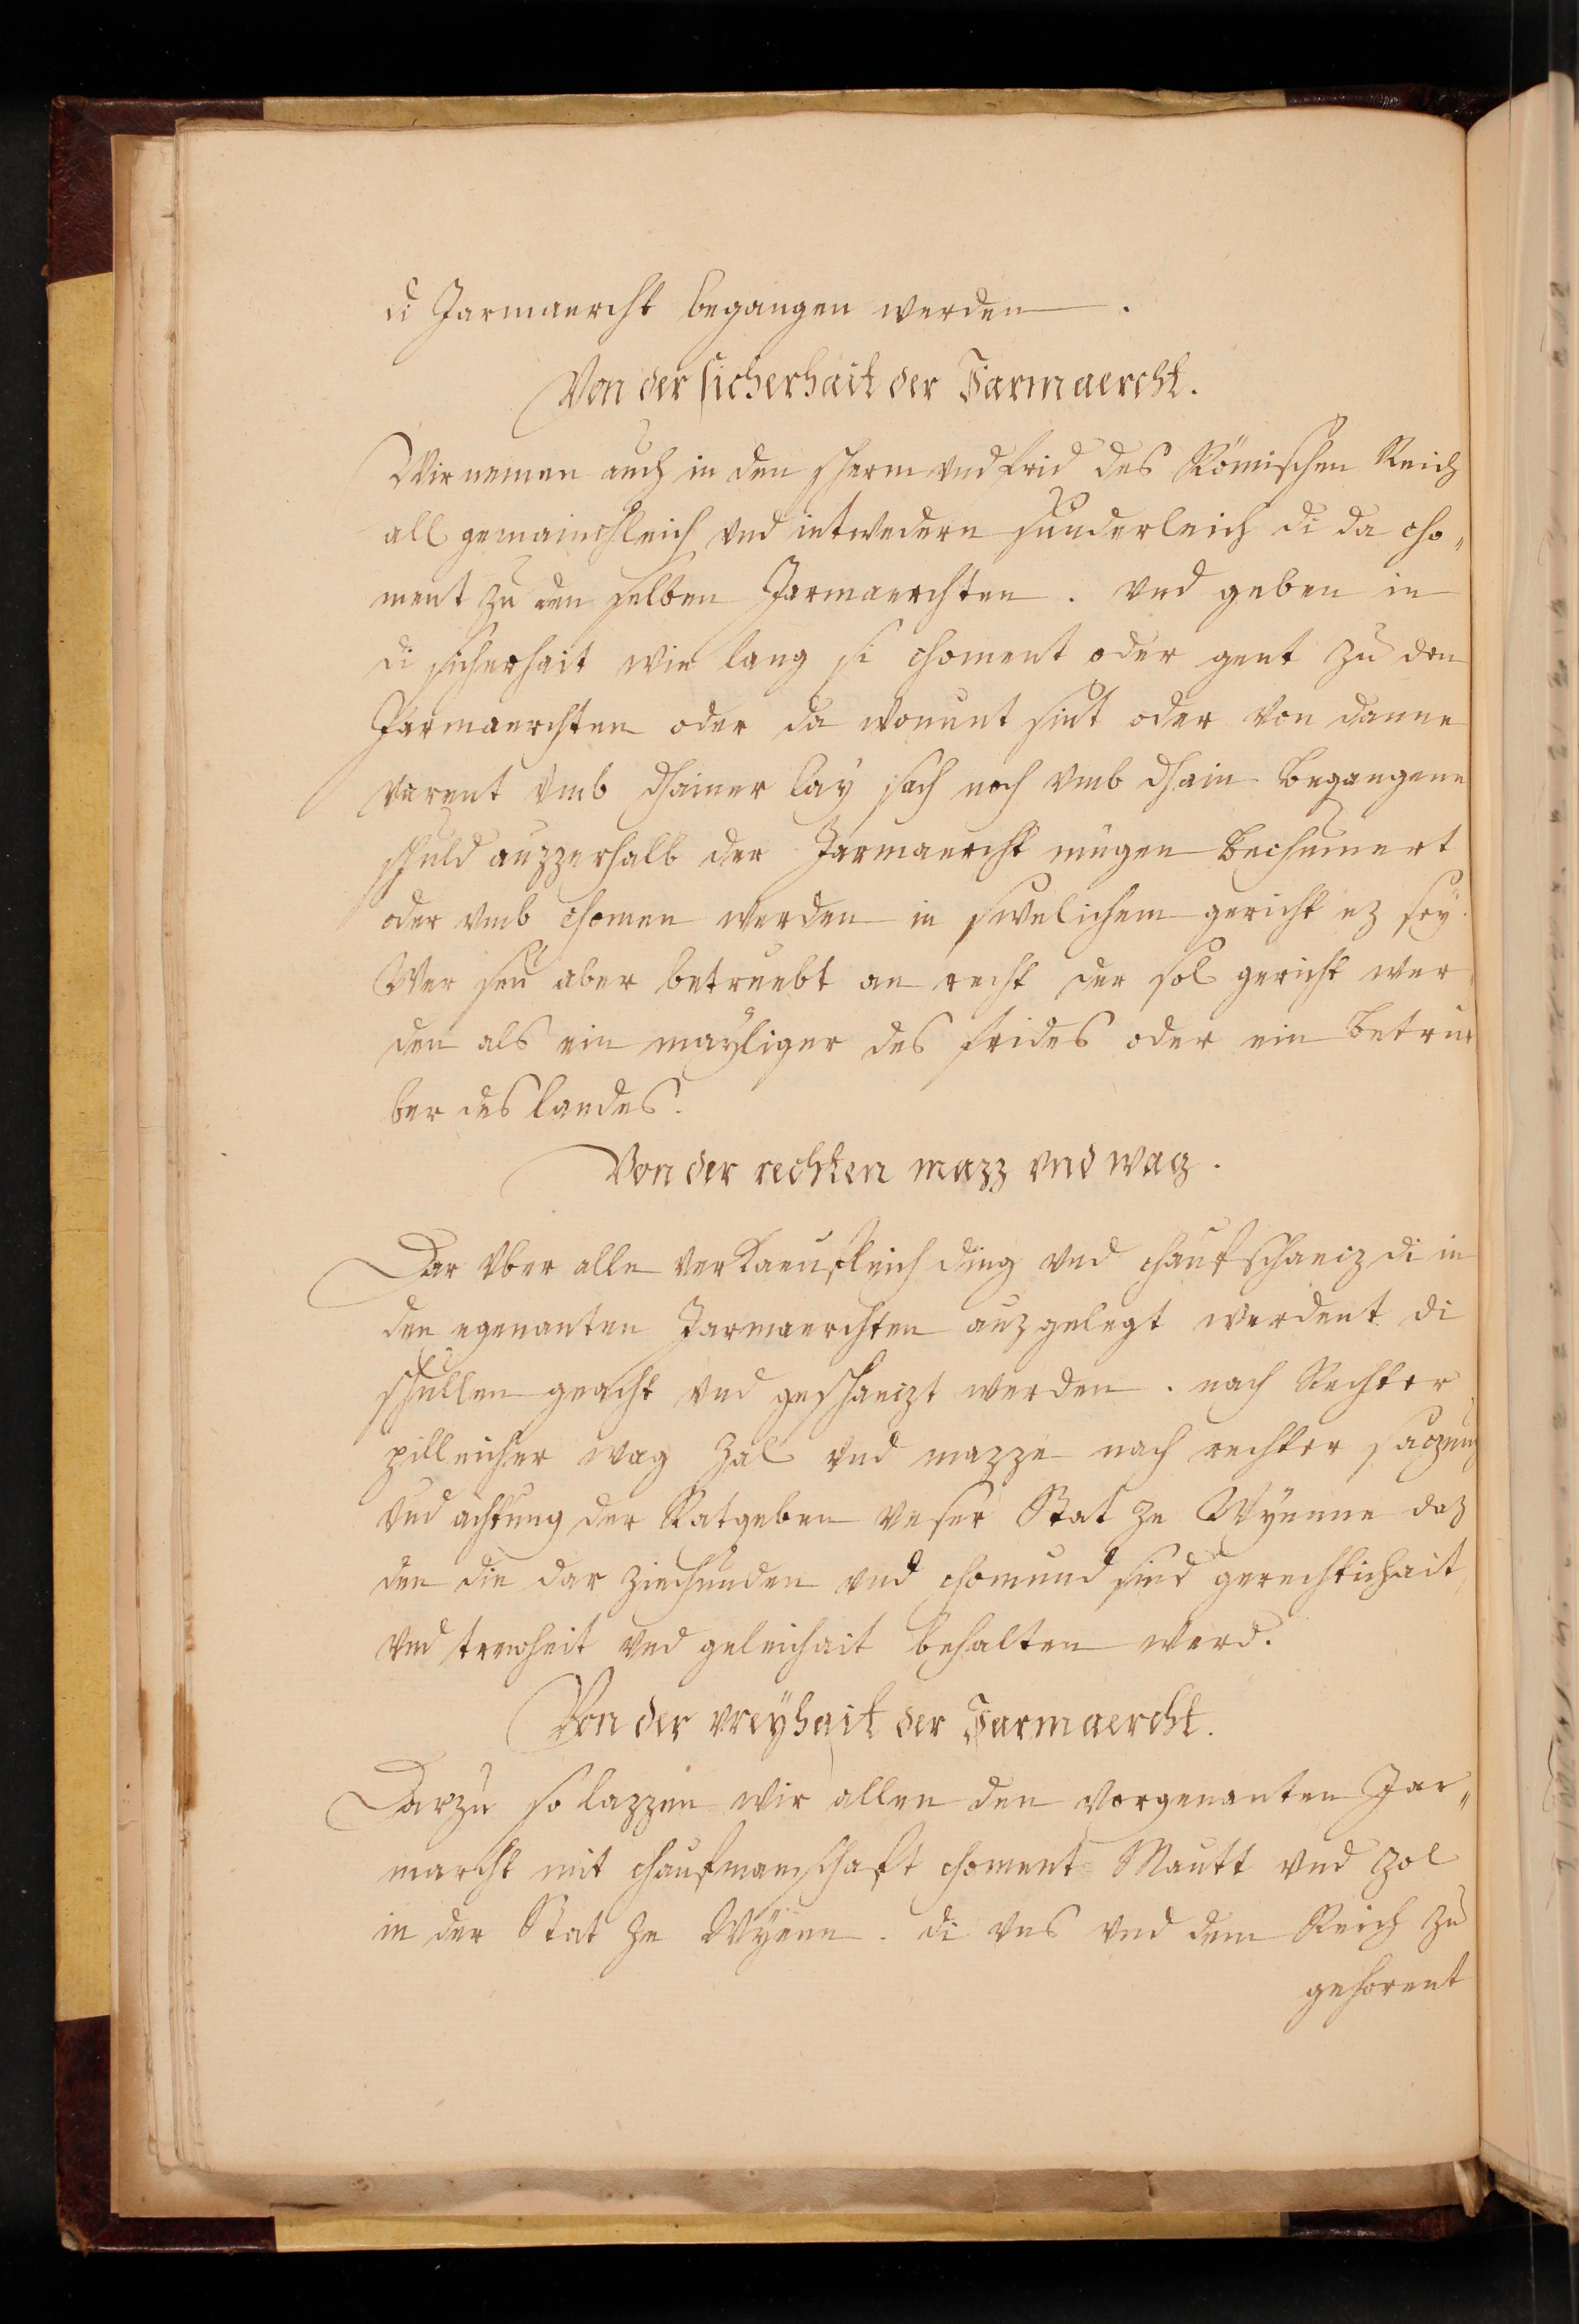 di Jarmaercht begangen werden .
Von der sicherhait der Jarmaercht.
Wir nemen auch in den scherm vnd frid des Römischen Reich
all gemainchleich vnd ietwedern sunderleich di da cho„
ment zu den selben Jarmaerchten . vnd geben in
di sicherhait wie lang si choment oder gent zu den
Jarmaerchten oder da wonunt sint oder von danne
varent vmb chainer lay sach noch vmb chain begangene
schuld auzzerhalb der Jarmaercht mugen bechumert
oder vmb chomen werden in swelichem gericht ez sey.
Wer seu aber betruebt an recht der sol gericht wer
den als ein mayliger des frides oder ein betrue
ber des landes.
Von der rechten mazz vnd wag.
Dar vber alle verkaeufleich ding vnd chaufschancz di in
den egenanten Jarmaerchten auzgelegt werdent di
schullen geacht vnd geschanczt werden . nach Rechter
pilleicher wag zal vnd mazze nach rechter saczung
vnd achtung der Ratgeben vnser Stat ze Wyenne daz
den die dar ziechunden vnd chomund sind gerechtichait
vnd trewheit vnd geleichait behalten werd.
Von der vreyhait der Jarmaercht.
Darzu so lazzen wir allen den vorgenanten Jar„
marcht mit chaufmanschaft choment Mautt vnd Zol
in der Stat ze Wyenn . di vns vnd dem Reich zu
gehorent